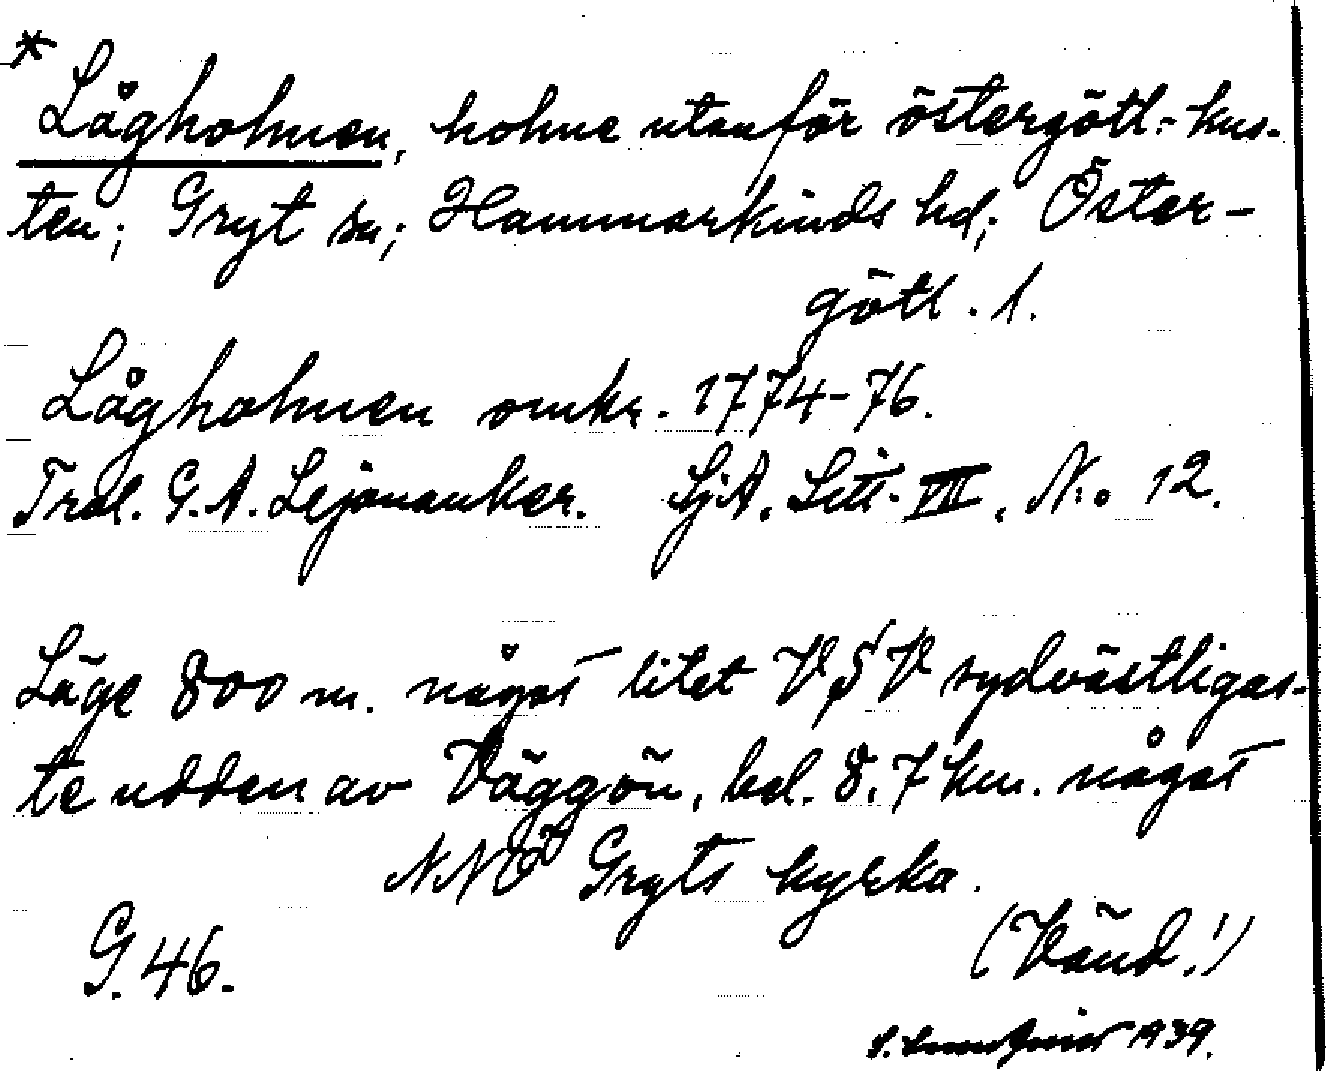 * Lågholmen, holme utanför östergötl.-kus-
ten; Gryt sn; Hammarkinds hd; Öster-
götl. l.
Lågholmen omkr. 1774-76.
Trol. G. A. Lejonanker. SjA. Litt. VII. No 12.
Läge 800 m. något litet VSV sydvästligas-
te udden av Väggön, bel. 8,7 km. något
NNÖ Gryts kyrka.
(Vänd!)
G. 46.
1939.